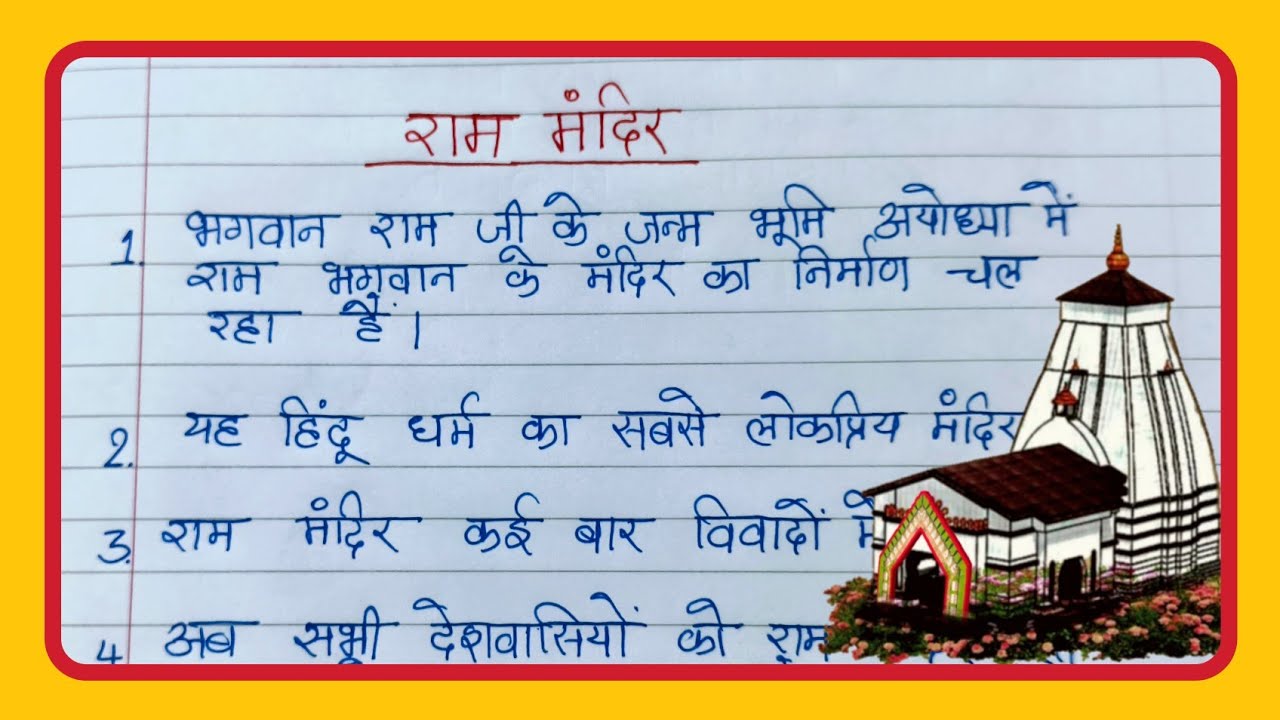 राम मंदिर
1. भगवान राम जी के जन्म भूमि अयोध्या में
राम भगवान के मंदिर का निर्माण चल
रहा हैं।
2. यह हिंदू धर्म का सबसे लोकप्रिय मंदिर
3. राम मंदिर कई बार विवादों में
4. अब सभी देशवासियों को राम